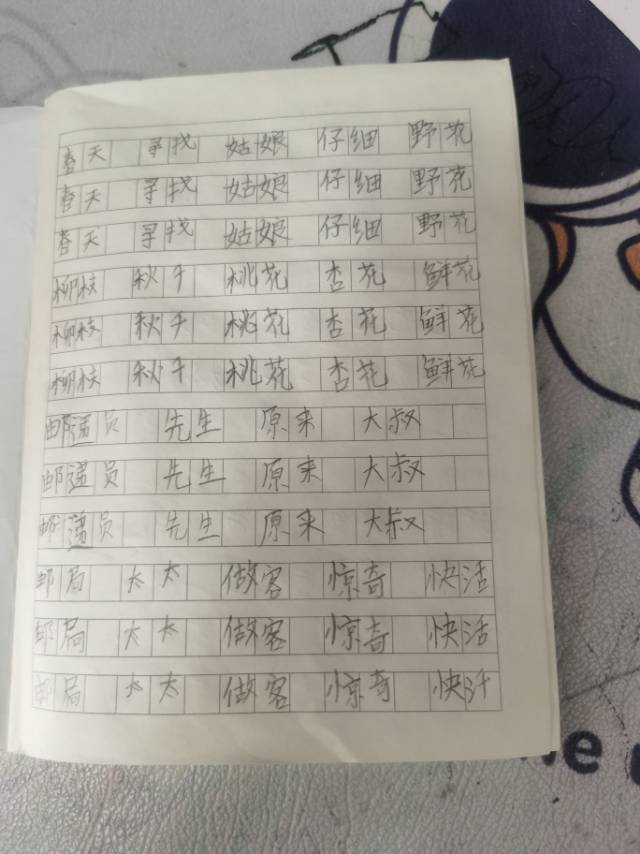 春天 寻找 姑娘 仔细 野花
春天 寻找 姑娘 仔细 野花
春天 寻找 姑娘 仔细 野花
柳枝 秋千 桃花 杏花 鲜花
柳枝 秋千 桃花 杏花 鲜花
柳枝 秋千 桃花 杏花 鲜花
邮递员 先生 原来 大叔
邮递员 先生 原来 大叔
邮递员 先生 原来 大叔
邮局 太太 做客 惊奇 快活
邮局 太太 做客 惊奇 快活
邮局 太太 做客 惊奇 快